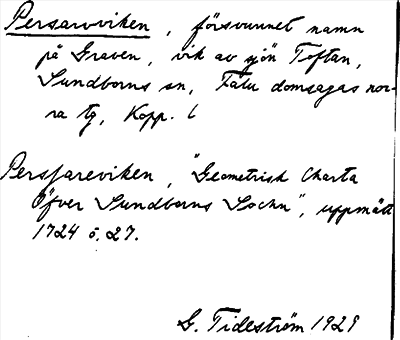 Persarvviken, försvunnet namn
på Graven, vik av sjön Toftan,
Sundborns sn, Falu domsagas nor-
ra tg, Kopp. l
Persfareviken, "Geometrisk Charta
Öfver Sundborns Sochn", uppmätt
1724 o. 27.
G. Tideström 1929